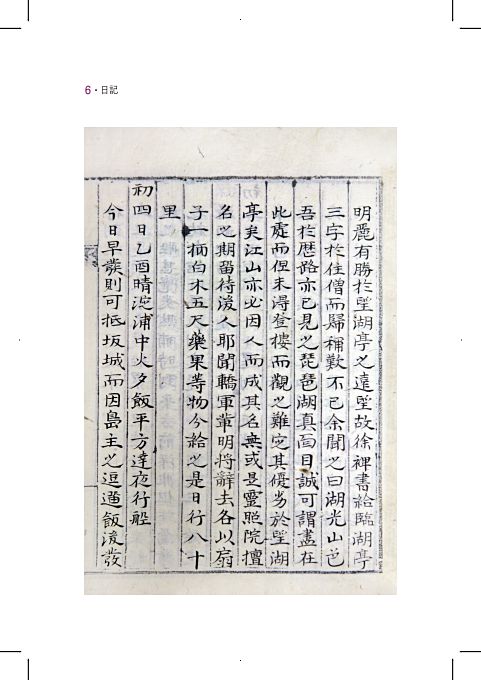 6 · 日記
明麗有勝於望湖亭之遠望故徐裨書給臨湖亭
三字於住僧而歸稱歎不已余聞之曰湖光山色
吾於歷路亦已見之琵琶湖真面目誠可謂盡在
此處而但未得登樓而觀之難定其優劣於望湖
亭矣江山亦必因人而成其名無或是靈照院擅
名之期留待後人耶聞轎軍輩明將辭去各以扇
子一柄白木五尺藥果等物分給之是日行八十
里
初四日乙酉晴淀浦中火夕飯平方達夜行船
今日早發則可抵坂城而因島主之逗遛飯後發